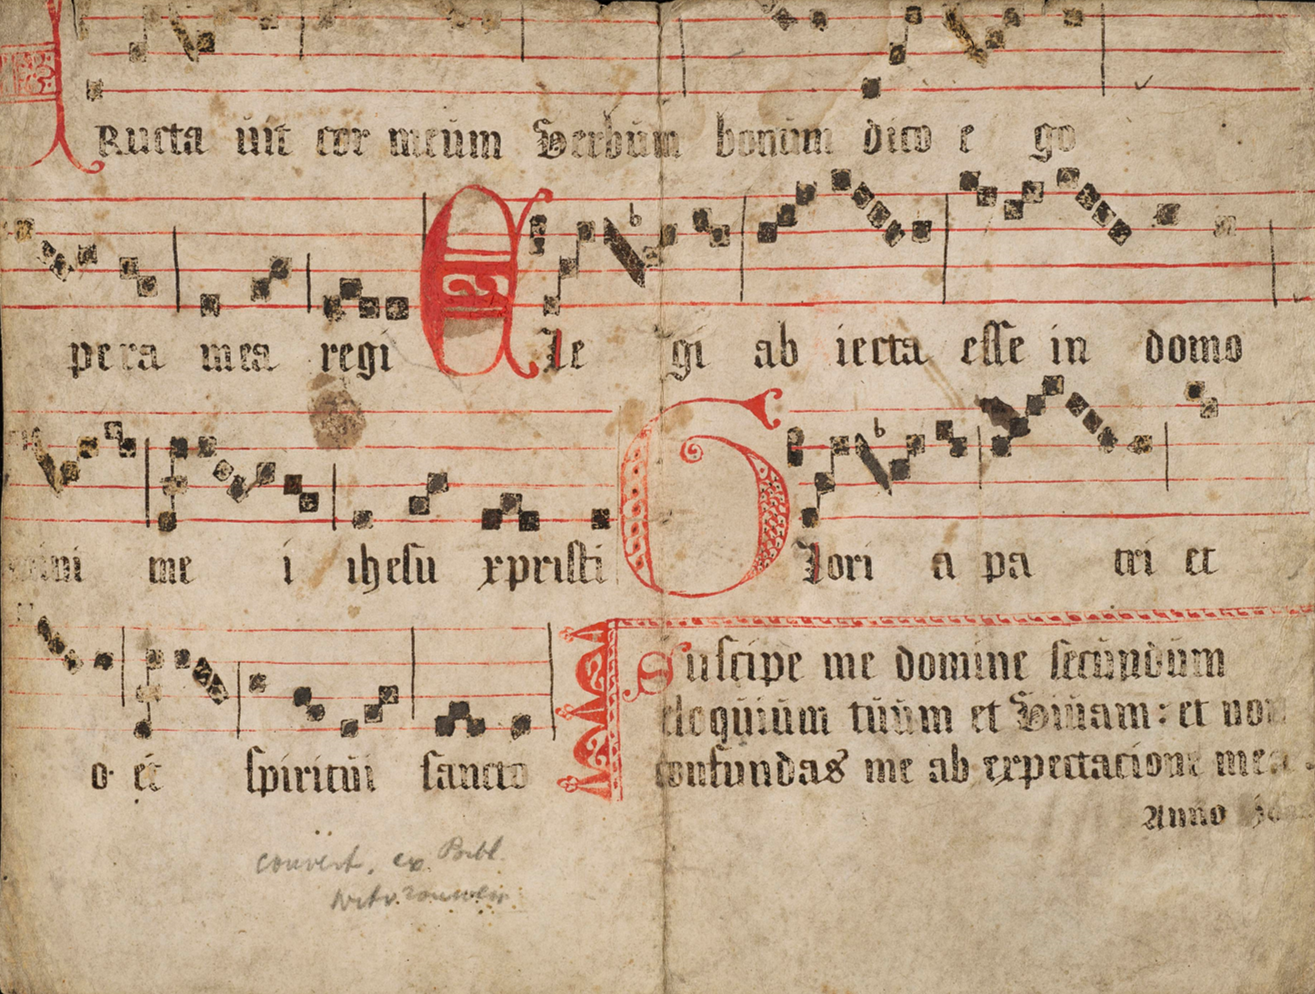 Eructa uit cor meum Verbum bonum dico e go
pera mea regi Ele gi ab iecta esse in domo
mini me i ihesu xpristi Glori a pa tri et
o et spiritui sancto Suscipe me domine secundum
eloquium tuum et viuam: et non
confundas me ab expectacione mea.
Anno
convert. ex Bibl.